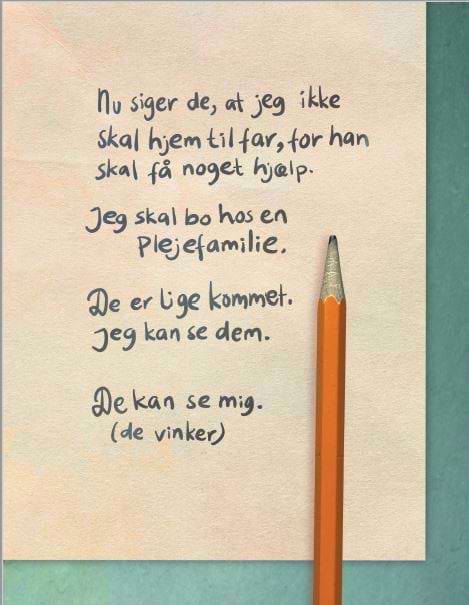 Nu siger de, at jeg ikke
skal hjem til far, for han
skal få noget hjælp.
Jeg skal bo hos en
Plejefamilie.
De er lige kommet.
Jeg kan se dem.
De kan se mig.
(de vinker)